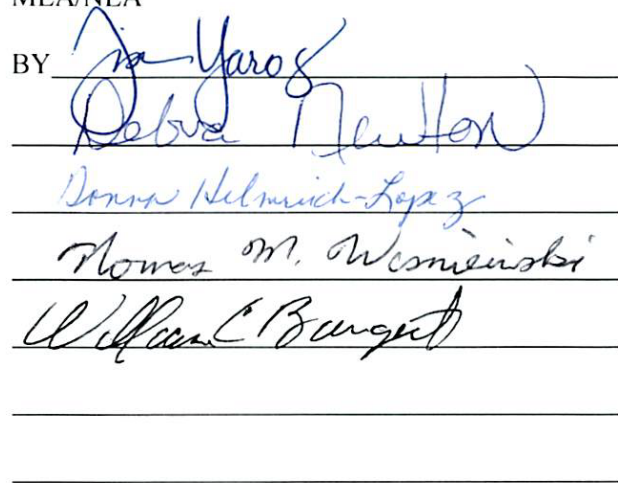 MEA/NEA
BY Jim Yarog
Debra Newton
Donna Helmrich-Lopez
Thomas M. Wisniewski
William C Bangert